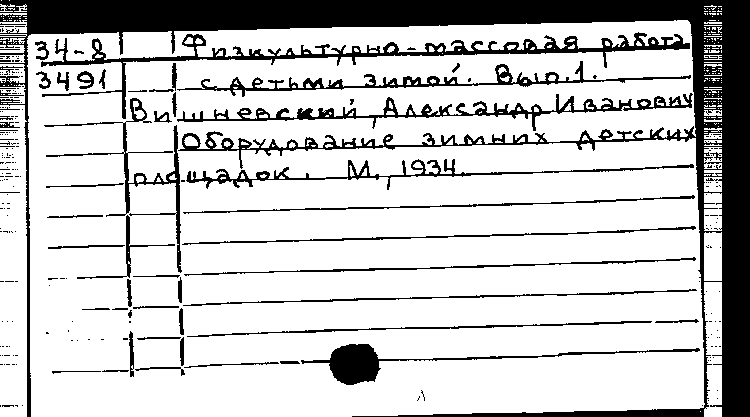 34-8 Физкультурно-массовая работа
3491 с детьми зимой. Вып.1.
Вишневский, Александр Иванович
Оборудование зимних детских
площадок. М., 1934.